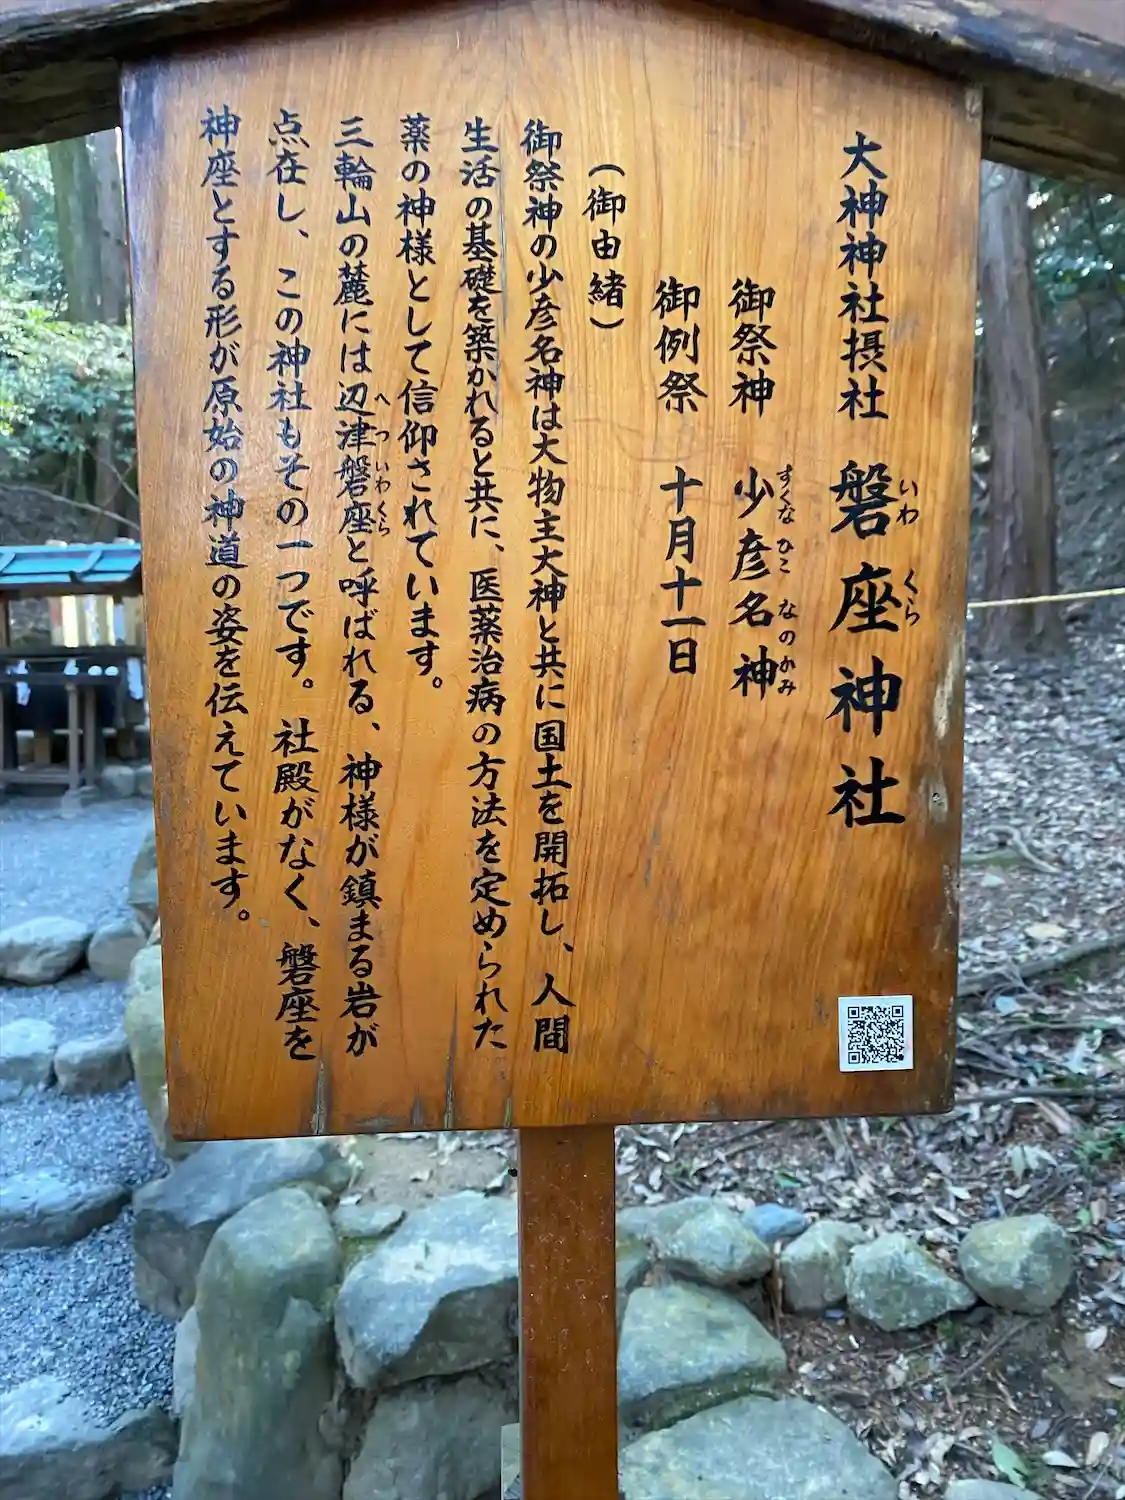 大神神社摂社 磐座神社
いわ くら
御祭神 少彦名神
すくな ひこ なのかみ
御例祭 十月十一日
（御由緒）
御祭神の少彦名神は大物主大神と共に国土を開拓し、人間
生活の基礎を築かれると共に、医薬治病の方法を定められた
薬の神様として信仰されています。
三輪山の麓には辺津磐座と呼ばれる、神様が鎮まる岩が
へ つ いわ くら
点在し、この神社もその一つです。社殿がなく、磐座を
神座とする形が原始の神道の姿を伝えています。